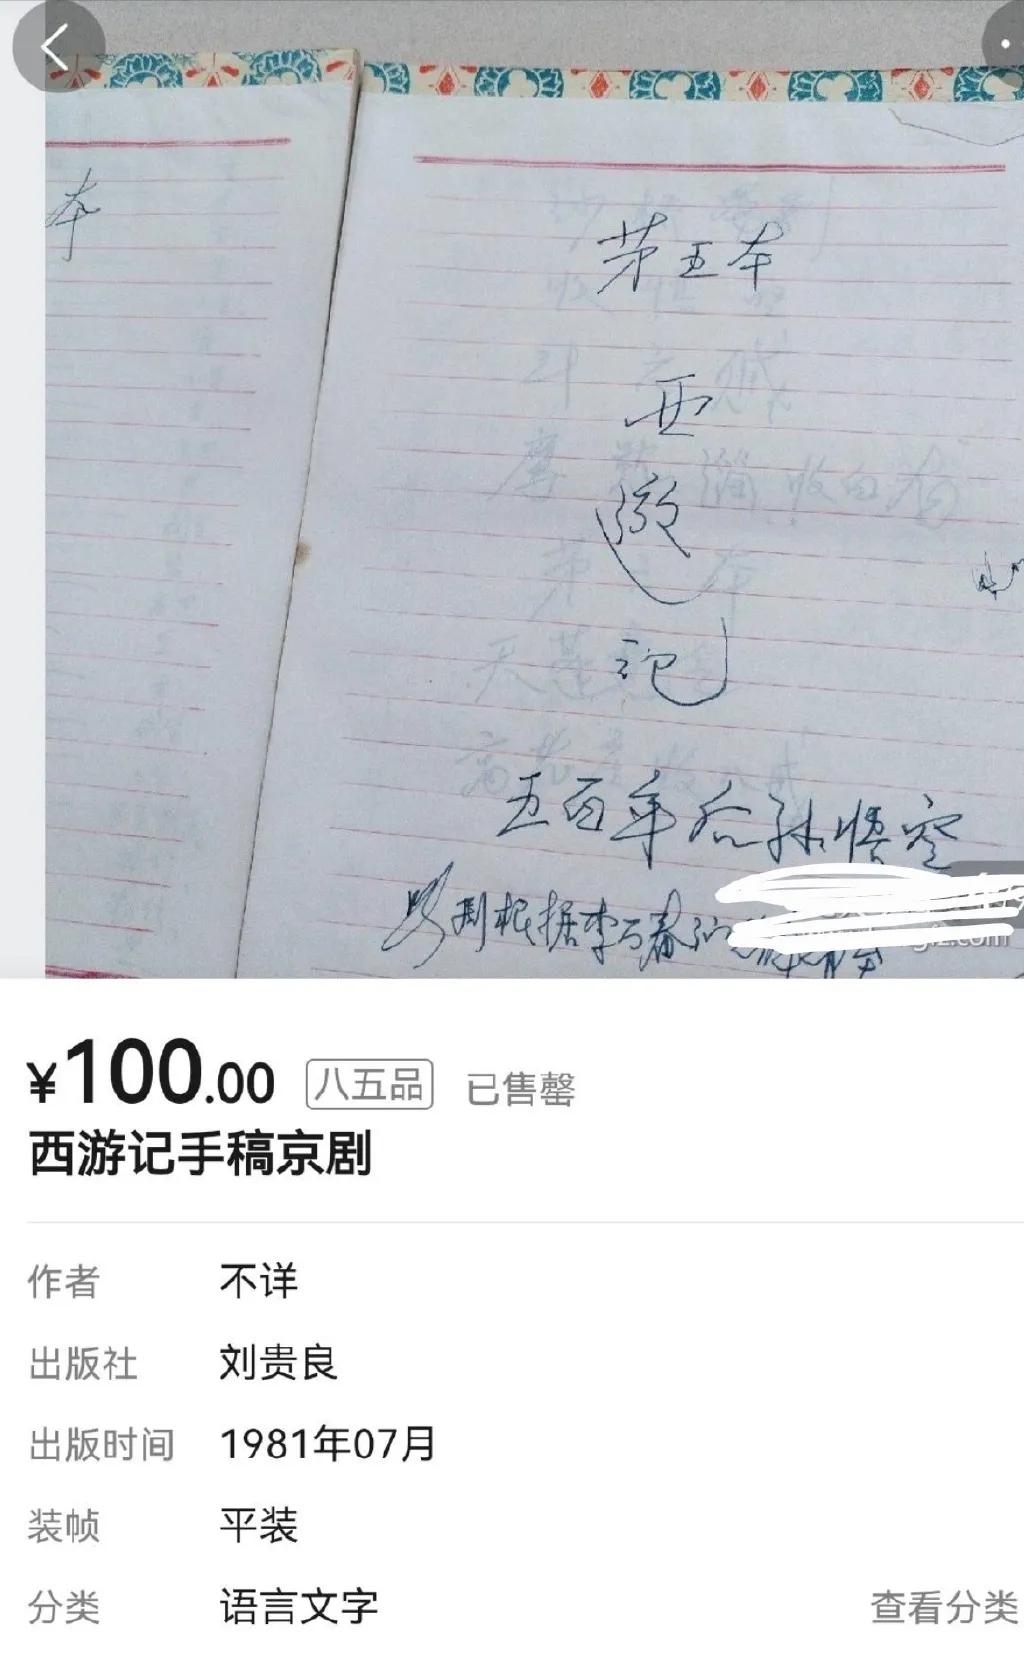 本
第五本
西
遊
记
五百年后孙悟空
剧根据李万春
¥100.00 八五品 已售罄
西游记手稿京剧
作者 不详
出版社 刘贵良
出版时间 1981年07月
装帧 平装
分类 语言文字 查看分类